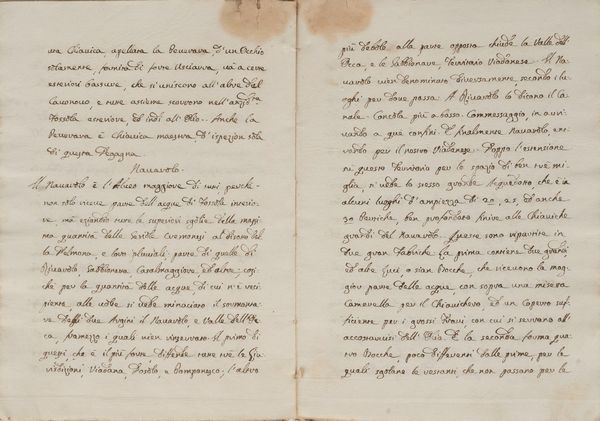 una Chiavica apellata la Peverara d'un occhio
solamente, fornita di forte Usciarra, va a' cavi
esteriori
che si uniscono all'altre dal
Cavo nuovo, e tutte assieme scorrono nell'
Fossola esteriore, ed indi all'Olio. Anche la
Peverara è Chiavica maestra d'ispezion sola
di questa Degagna.
Navarolo.
Il Navarolo è l'Alveo maggiore di tutti, perche
non solo riceve parte dell'acque di Fossola inferio-
re, ma eziandio tutte le superiori scolie della mass-
ima quantità delle Seriole Cremonesi al di sotto del
la Delmona, e loro pluviali, parte di quelle di
Rivarolo, Sabbioneta, Casalmaggiore, ed altre, cosi-
che per la quantità delle acque di cui n'è reci-
piente, alle volte si vede minaciare il sormonta-
re degli due Argini il Navarolo, e Valle dell'Oc-
ca, framezzo i quali vien
Il primo di
questi, che è il più forte, diffende tutte tré le Giu-
risdizioni, Viadana, Dosolo, e Pomponesco; l'altro
più debole alla parte opposta chiude la Valle dell'
Oca, e le Sabbionare, Territorio Viadanese. Il Na-
varolo vien denominato diversamente, secondo i luo-
ghi per dove passa. A Rivarolo lo dicono il Ca-
nale. Concola più a basso. Commessaggio, in arri-
vando a que' confini. E finalmente Navarolo, en-
trando per il nostro Viadanese. Doppo l'estensione
in questo Territorio per lo spazio di ben tré mi-
glia, si vede lo stesso grande
che è in
alcuni luoghi d'ampiezza di 20, 25, ed anche
30 Pertiche, ben profondato finire alle Chiaviche
grandi del Navarolo. Queste sono ripartite in
due gran Fabriche. La prima contiene due grandi,
ed alte Luci, o sian Bocche, che ricevono la mag-
gior parte delle acque, con sopra una misera
Cameretta per il Chiavichero, ed un Coperto suf-
ficiente per i grossi Travi con cui si serrano all'
accostarvisi dell'Olio. E la seconda forma quat-
tro Bocche, poco differenti dalle prime, per le
quali scolano le restanti, che non passano per le